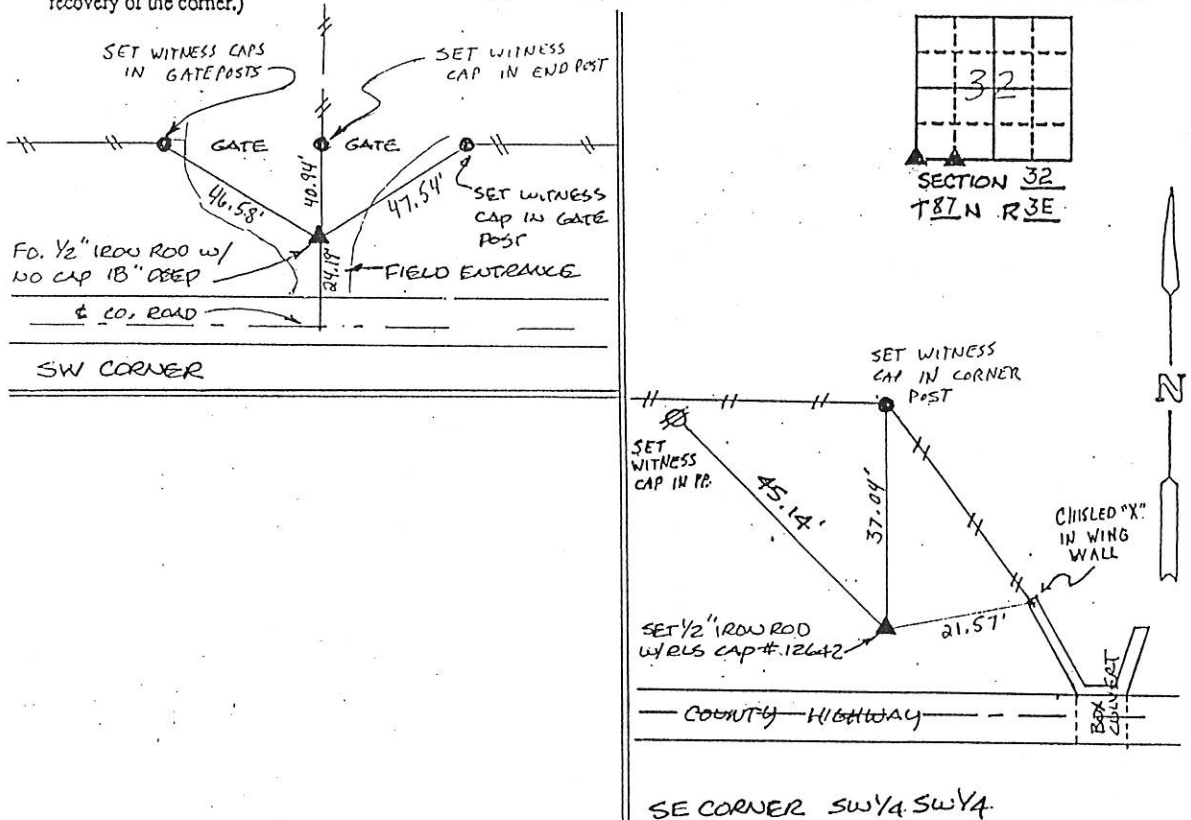 recovery of the corner.)
SET WITNESS CAPS
IN GATEPOSTS
SET WITNESS
CAP IN END POST
GATE
GATE
46.58'
40.94'
47.54'
SET WITNESS
CAP IN GATE
POST
FD. 1/2" IRON ROD W/
NO CAP 18" DEEP
24.19'
FIELD ENTRANCE
℄ CO. ROAD
SW CORNER
32
SECTION 32
T87N R3E
N
SET WITNESS
CAP IN CORNER
POST
SET
WITNESS
CAP IN PP.
45.14'
37.04'
CHISLED "X"
IN WING
WALL
SET 1/2" IRON ROD
W/RLS CAP #12642
21.57'
COUNTY HIGHWAY
BOX
CULVERT
SE CORNER SW1/4 SW1/4